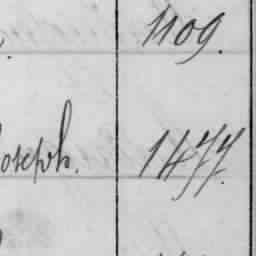 1109.
Joseph. 1477.